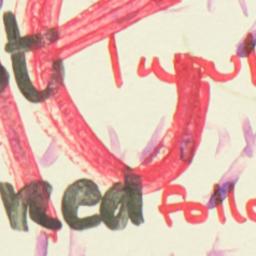 t I wou
ned follo